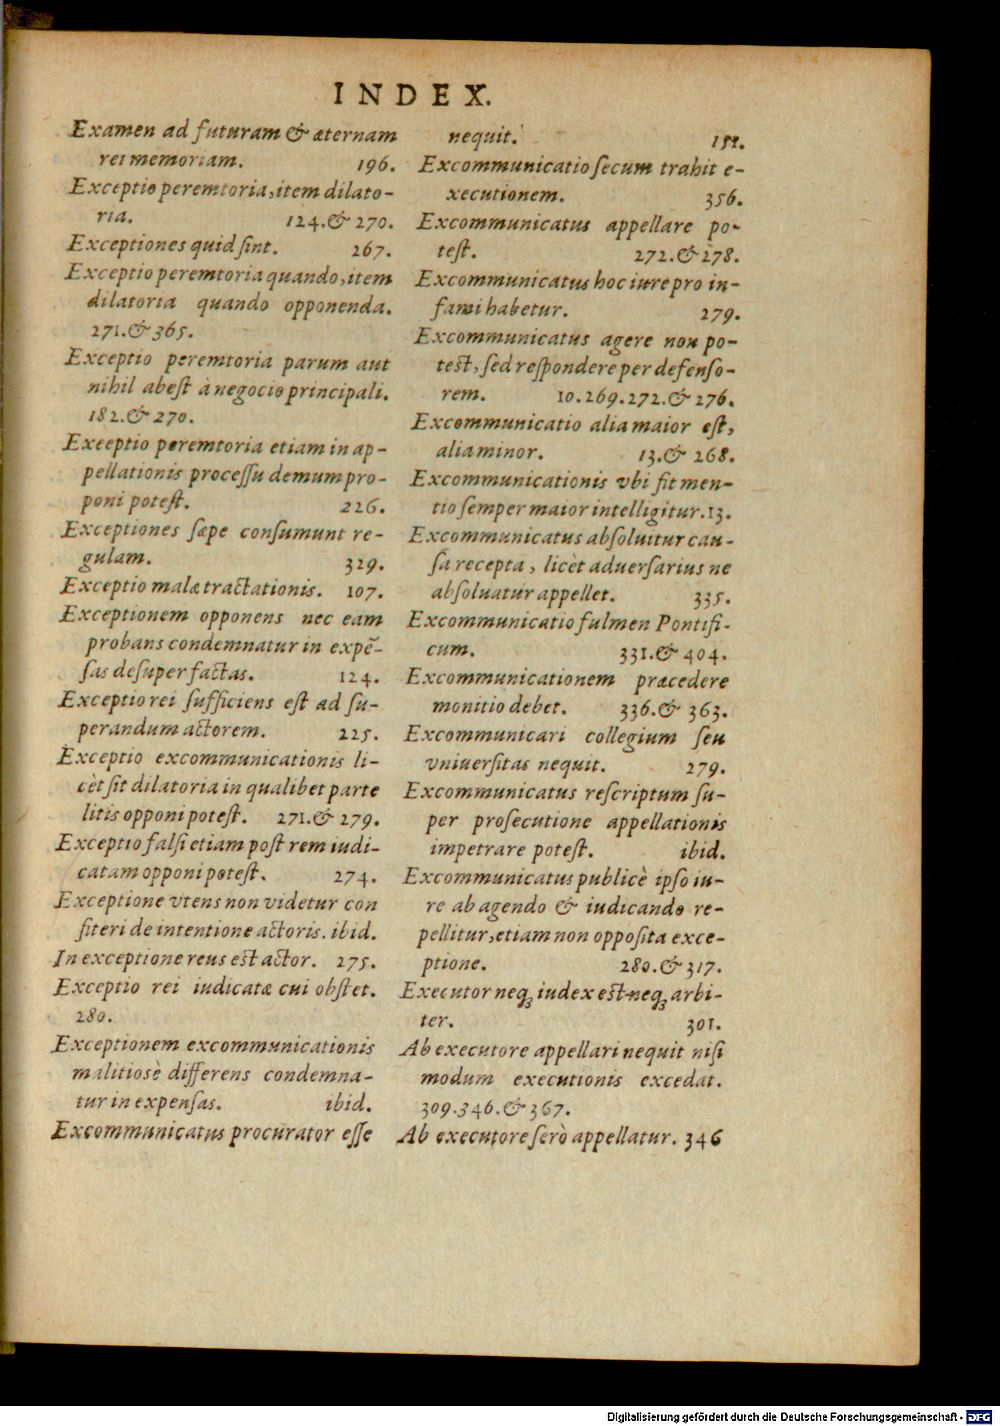 INDEX.
Examen ad futuram & æternam
rei memoriam. 196.
Exceptio peremtoria, item dilato-
ria. 124. & 270.
Exceptiones quid ſint. 267.
Exceptio peremtoria quando, item
dilatoria quando opponenda.
271. & 365.
Exceptio peremtoria parum aut
nihil abeſt à negocio principali.
182. & 270.
Exeeptio peremtoria etiam in ap-
pellationis proceſſu demum pro-
poni poteſt. 226.
Exceptiones ſæpe conſumunt re-
gulam. 329.
Exceptio malæ tractationis. 107.
Exceptionem opponens nec eam
probans condemnatur in expẽ-
ſas deſuper factas. 124.
Exceptio rei ſufficiens eſt ad ſu-
perandum actorem. 225.
Exceptio excommunicationis li-
cèt ſit dilatoria in qualibet parte
litis opponi poteſt. 271. & 279.
Exceptio falſi etiam poſt rem iudi-
catam opponi poteſt. 274.
Exceptione vtens non videtur con
fiteri de intentione actoris. ibid.
In exceptione reus est actor. 275.
Exceptio rei iudicatæ cui obſtet.
280.
Exceptionem excommunicationis
malitiosè differens condemna-
tur in expenſas. ibid.
Excommunicatus procurator eſſe
nequit. 151.
Excommunicatio ſecum trahit e-
xecutionem. 356.
Excommunicatus appellare po-
teſt. 272. & 278.
Excommunicatus hoc iure pro in-
fami habetur. 279.
Excommunicatus agere non po-
test, ſed reſpondere per defenſo-
rem. 10. 269. 272. & 276.
Excommunicatio alia maior eſt,
alia minor. 13. & 268.
Excommunicationis vbi fit men-
tio ſemper maior intelligitur. 13.
Excommunicatus abſoluitur cau-
ſa recepta, licèt aduerſarius ne
abſoluatur appellet. 335.
Excommunicatio fulmen Pontifi-
cum. 331. & 404.
Excommunicationem præcedere
monitio debet. 336. & 363.
Excommunicari collegium ſeu
vniuerſitas nequit. 279.
Excommunicatus reſcriptum ſu-
per proſecutione appellationis
impetrare poteſt. ibid.
Excommunicatus publicè ipſo iu-
re ab agendo & iudicando re-
pellitur, etiam non oppoſita exce-
ptione. 280. & 317.
Executor neqꝫ iudex est neqꝫ arbi-
ter. 301.
Ab executore appellari nequit niſi
modum executionis excedat.
309. 346. & 367.
Ab executore ſerò appellatur. 346
Digitalisierung gefördert durch die Deutsche Forschungsgemeinschaft - DFG